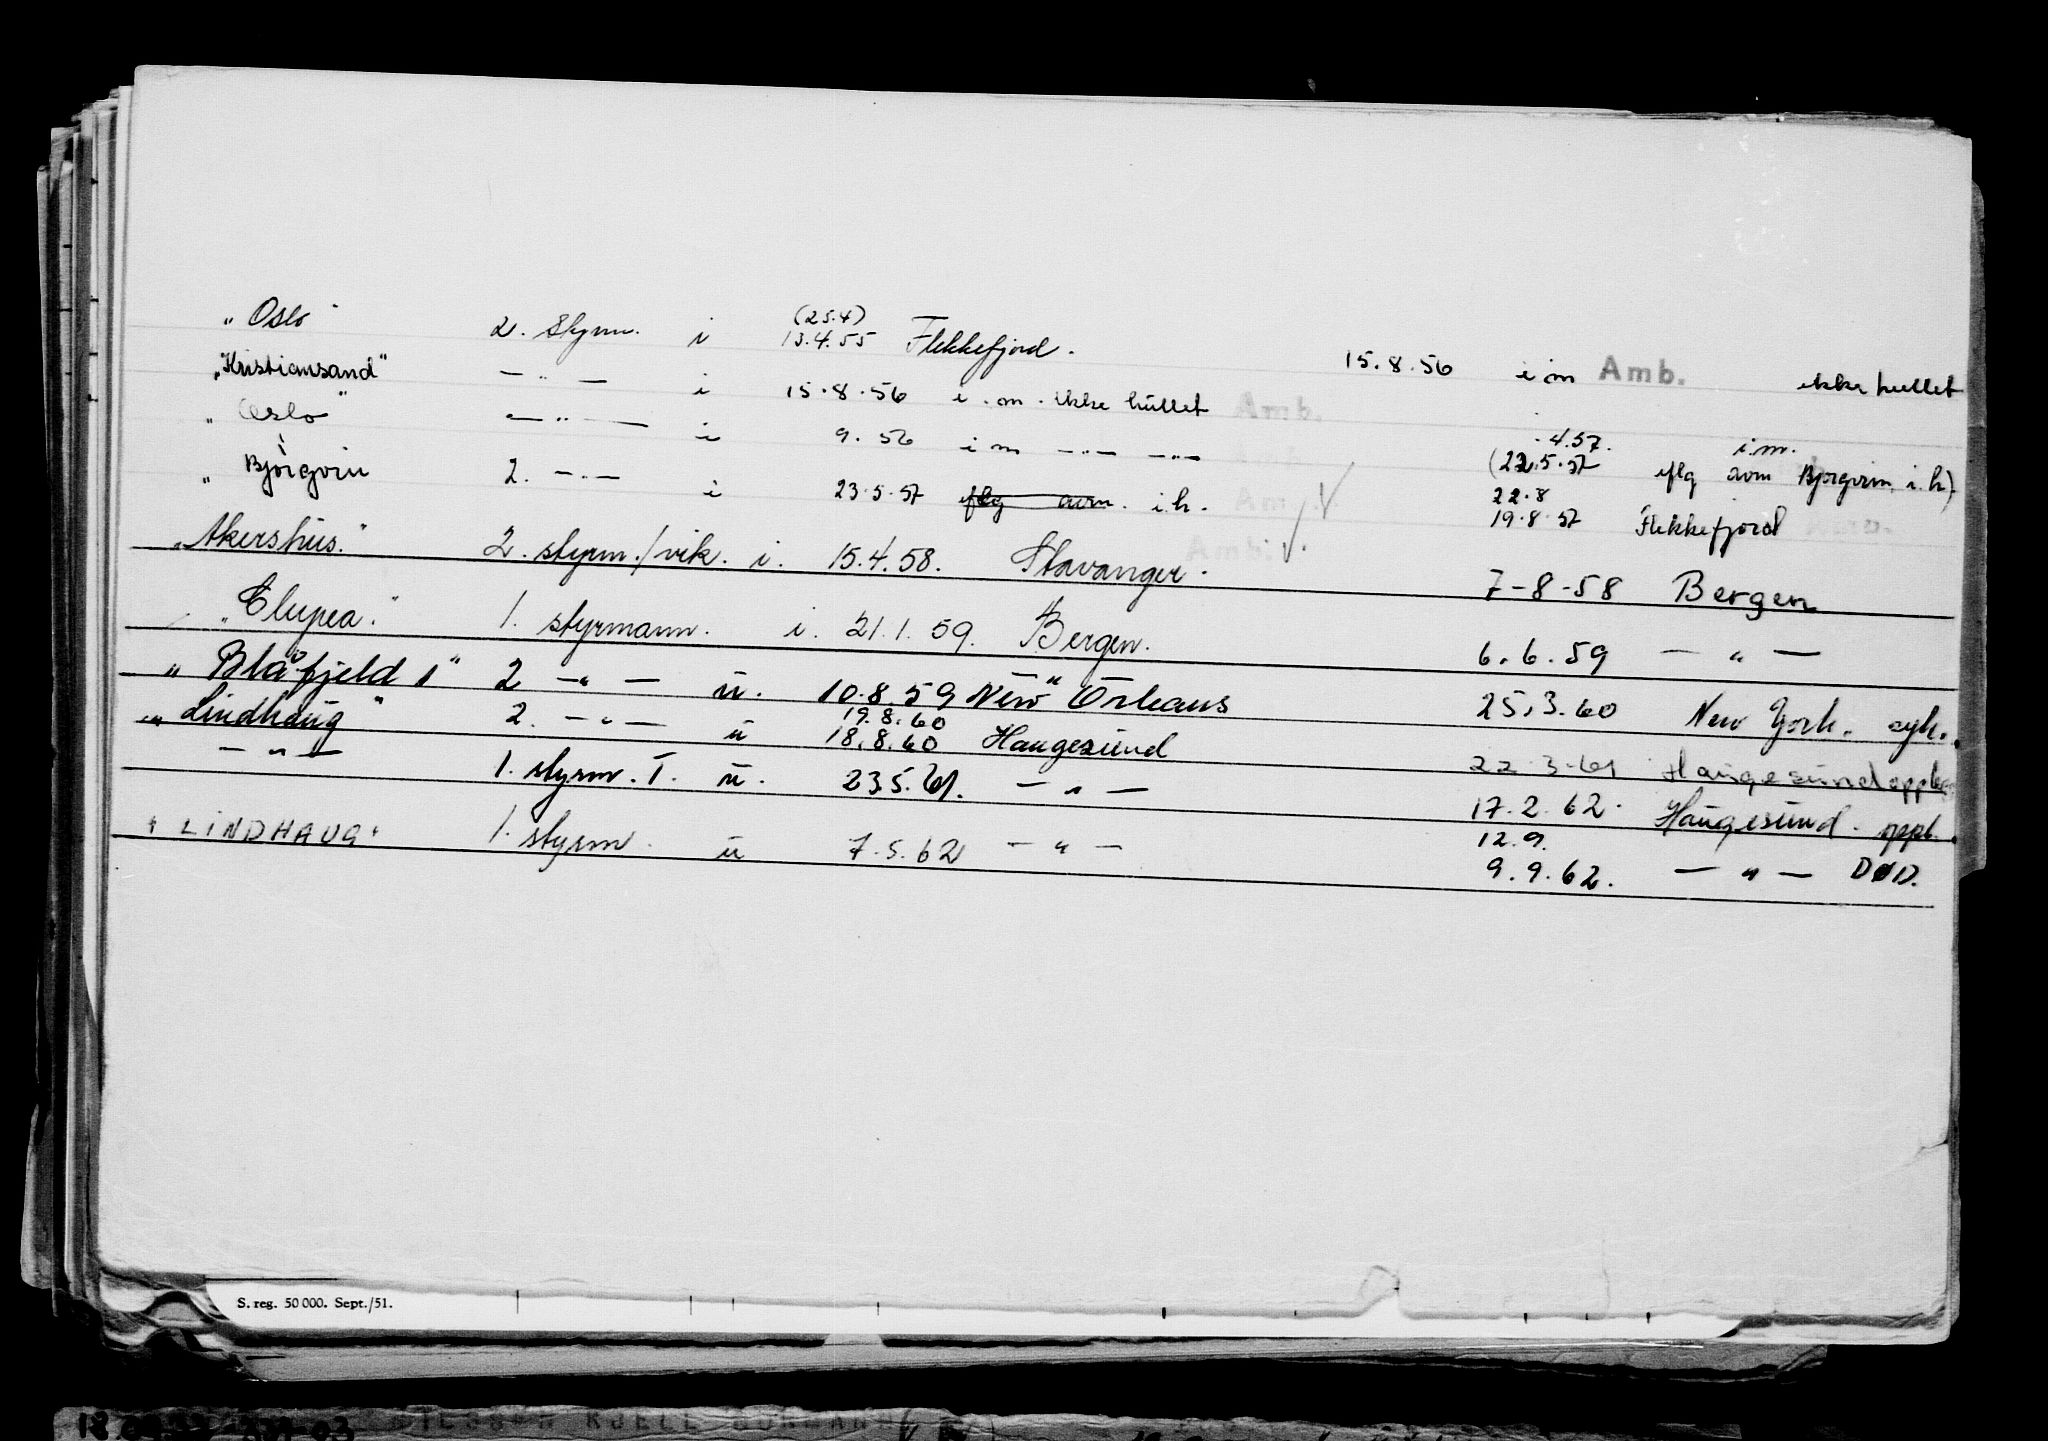 "Oslo" 2. Styrm. i (25.4) 13.4.55 Flekkefjord. 15.8.56 i m Amb. ikke hullet
"Kristiansand" — " — i 15.8.56 i. m. ikke hullet Amb. -.4.57. i.m.
"Oslo" — " — i 9.56 i m — " — — " — (22.5.57 eflg avm Bjørgvin i.h)
"Bjørgvin 2. — " — i 23.5.57 eflg avm. i.h. Amb. 22.8 19.8.57 Flekkefjord
"Akershus." 2. styrm./vik. i. 15.4.58. Stavanger. Amb. 7-8-58 Bergen
"Clupea." 1. styrmann. i. 21.1.59. Bergen. 6.6.59 — " —
"Blåfjeld 1" 2 — " — u. 10.8.59 New Orleans 25.3.60 New York. syk.
"Lindhaug" 2. — " — u 19.8.60 18.8.60 Haugesund 22-3-61 Haugesund
— " — 1. styrm. T. u. 23.5.61. — " — 17.2.62. Haugesund. oppl.
"LINDHAUG" 1. styrm. u 7.5.62 — " — 12.9. 9.9.62. — " — DØD.
S. reg. 50 000. Sept./51.